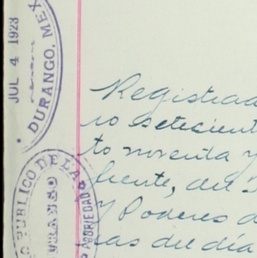 JUL 4 1923
DURANGO, MEX
PUBLICO DE LA
PROPIEDAD
DURANGO
Registrad
ro setecient
to noventa y
frente, del
y Poderes d
cas del día